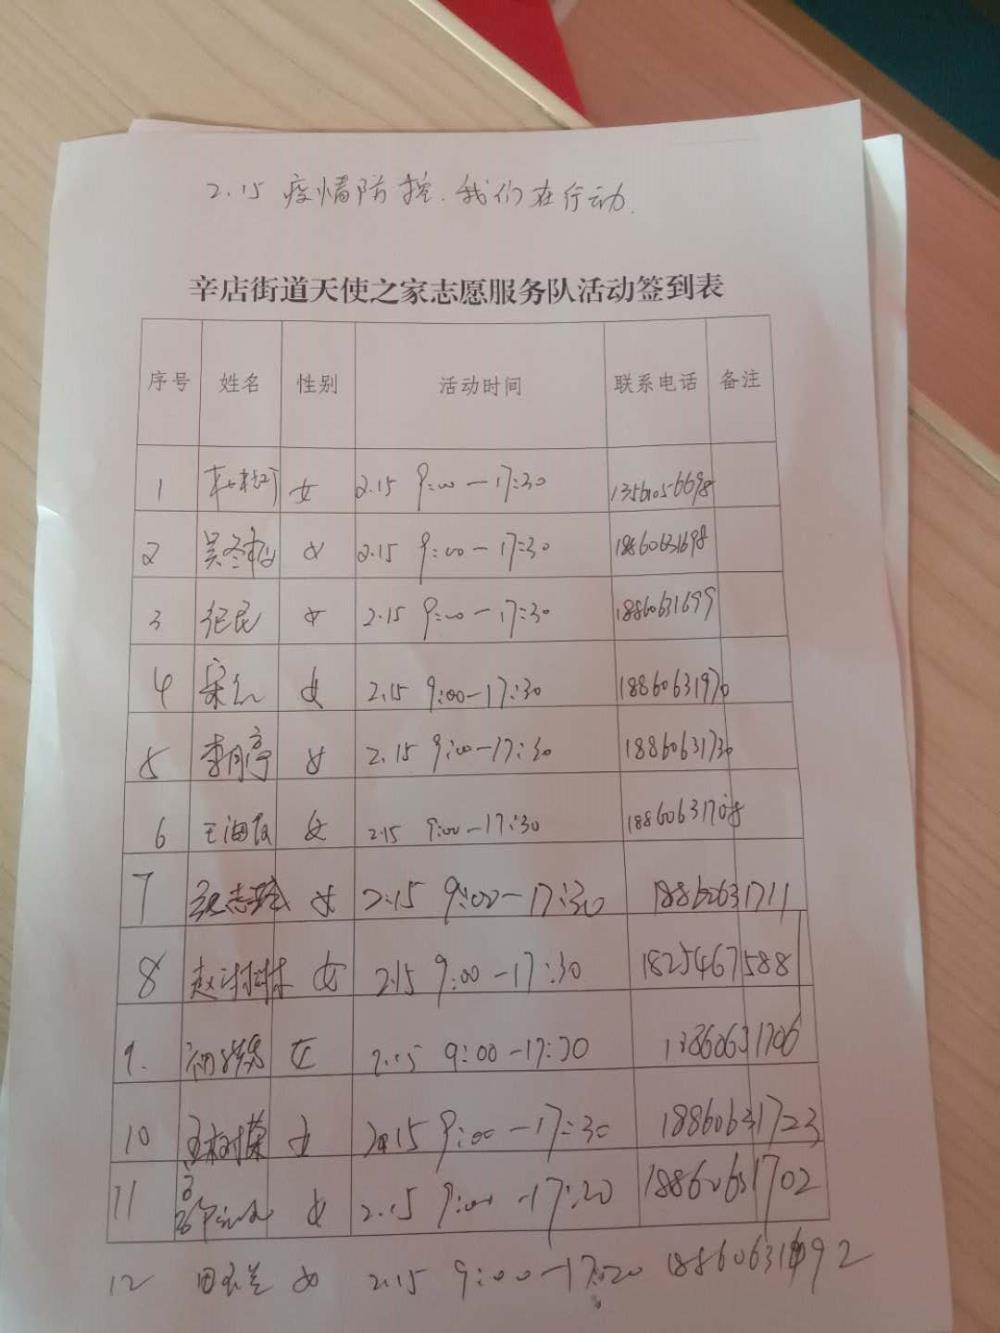 2.15 疫情防控.我们在行动.
辛店街道天使之家志愿服务队活动签到表
序号 姓名 性别 活动时间 联系电话 备注
1 女 2.15 9:00-17:30 13561056698
2 女 2.15 9:00-17:30 18860631698
3 纪民 女 2.15 9:00-17:30 18860631699
4 女 2.15 9:00-17:30 18860631970
5 李月亭 女 2.15 9:00-17:30 18860631730
6 王海霞 女 2.15 9:00-17:30 18860631708
7 女 2.15 9:00-17:30 18860631711
8 赵琳琳 女 2.15 9:00-17:30 18254671588
9. 女 2.15 9:00-17:30 18860631706
10 女 2.15 9:00-17:30 18860631723
11 女 2.15 9:00-17:20 18860631702
12 田玉兰 女 2.15 9:00-17:20